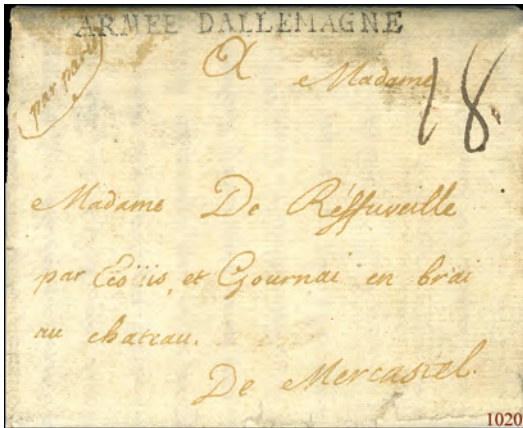 ARMEE DALLEMAGNE
par paris
A
Madame
18
Madame De Réffuveille
par Ecöüis, et Gournai en brai
au chateau.
De Mercastel.
1020